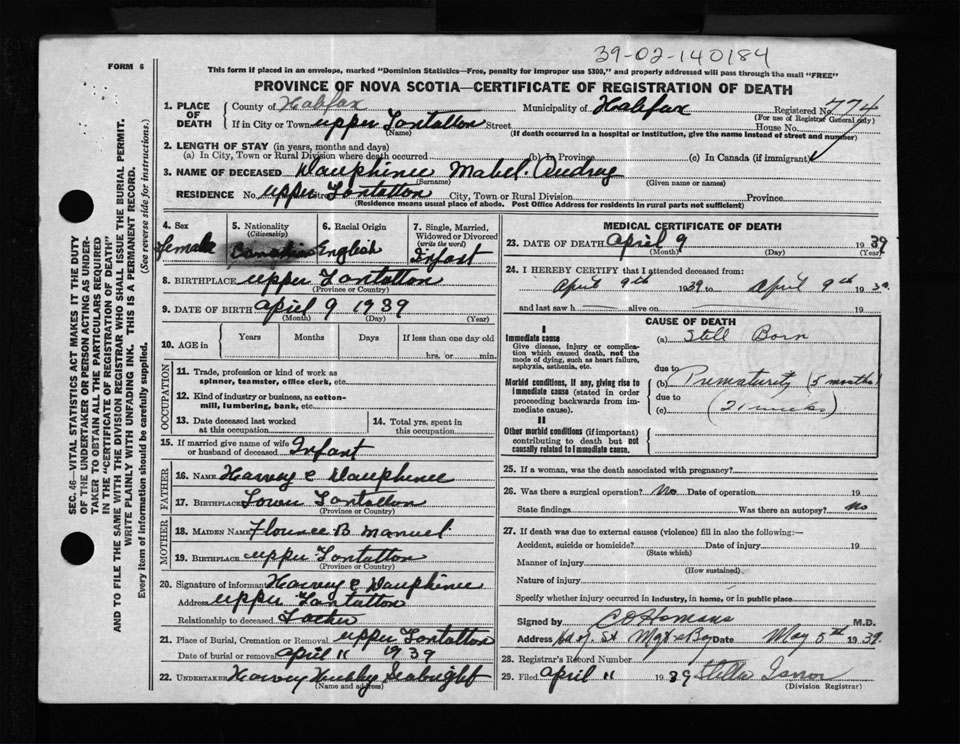 39-02-140184
FORM 6
This form if placed in an envelope, marked "Dominion Statistics—Free, penalty for improper use $300," and properly addressed will pass through the mail "FREE"
PROVINCE OF NOVA SCOTIA—CERTIFICATE OF REGISTRATION OF DEATH
1. PLACE OF DEATH County of Halifax Municipality of Halifax Registered No. 774
(For use of Registrar General only)
If in City or Town upper Tantallon Street House No.
(Name) (If death occurred in a hospital or institution, give the name instead of street and number)
2. LENGTH OF STAY (in years, months and days)
(a) In City, Town or Rural Division where death occurred (b) In Province (c) In Canada (if immigrant)
3. NAME OF DECEASED Dauphinee Mabel. Audrey
(Surname) (Given name or names)
RESIDENCE No. upper Street Tantallon City, Town or Rural Division Province
(Residence means usual place of abode. Post Office Address for residents in rural parts not sufficient)
4. Sex 5. Nationality (Citizenship) 6. Racial Origin 7. Single, Married, Widowed or Divorced (write the word)
Female Canadian English Infant
8. BIRTHPLACE upper Tantallon
(Province or Country)
9. DATE OF BIRTH April 9 1939
(Month) (Day) (Year)
10. AGE in Years Months Days If less than one day old
hrs. or min.
OCCUPATION
11. Trade, profession or kind of work as
spinner, teamster, office clerk, etc.
12. Kind of industry or business, as cotton-
mill, lumbering, bank, etc.
13. Date deceased last worked at this occupation 14. Total yrs. spent in this occupation
15. If married give name of wife
or husband of deceased Infant
FATHER
16. NAME Harvey C Dauphinee
17. BIRTHPLACE Lower Tantallon
(Province or Country)
MOTHER
18. MAIDEN NAME Florence B Manuel
19. BIRTHPLACE upper Tantallon
(Province or Country)
20. Signature of informant Harvey C Dauphinee
Address upper Tantallon
Relationship to deceased Father
21. Place of Burial, Cremation or Removal upper Tantallon
Date of burial or removal April 11 1939
22. UNDERTAKER Harvey Hubley Seabright
(Name and address)
MEDICAL CERTIFICATE OF DEATH
23. DATE OF DEATH April 9 1939
(Month) (Day) (Year)
24. I HEREBY CERTIFY that I attended deceased from:
April 9th 1939 to April 9th 1939.
and last saw h alive on 19
CAUSE OF DEATH
I
Immediate cause
Give disease, injury or complication which caused death, not the mode of dying, such as heart failure, asphyxia, asthenia, etc.
(a) Still Born
due to
Morbid conditions, if any, giving rise to immediate cause (stated in order proceeding backwards from immediate cause).
(b) Prematurity (5 months)
due to
(c) (21 weeks)
II
Other morbid conditions (if important) contributing to death but not causally related to immediate cause.
25. If a woman, was the death associated with pregnancy?
26. Was there a surgical operation? No Date of operation 19
State findings Was there an autopsy? No
27. If death was due to external causes (violence) fill in also the following:—
Accident, suicide or homicide? Date of injury 19
(State which)
Manner of injury
(How sustained)
Nature of injury
Specify whether injury occurred in industry, in home, or in public place
Signed by M.D.
Address Date May 5th 1939.
28. Registrar's Record Number
29. Filed April 11 1939 Stella
(Division Registrar)
SEC. 46—VITAL STATISTICS ACT MAKES IT THE DUTY
OF THE UNDERTAKER OR PERSON ACTING AS UNDER-
TAKER TO OBTAIN ALL THE PARTICULARS REQUIRED
IN THE "CERTIFICATE OF REGISTRATION OF DEATH"
AND TO FILE THE SAME WITH THE DIVISION REGISTRAR WHO SHALL ISSUE THE BURIAL PERMIT.
WRITE PLAINLY WITH UNFADING INK. THIS IS A PERMANENT RECORD.
Every item of information should be carefully supplied. (See reverse side for instructions.)